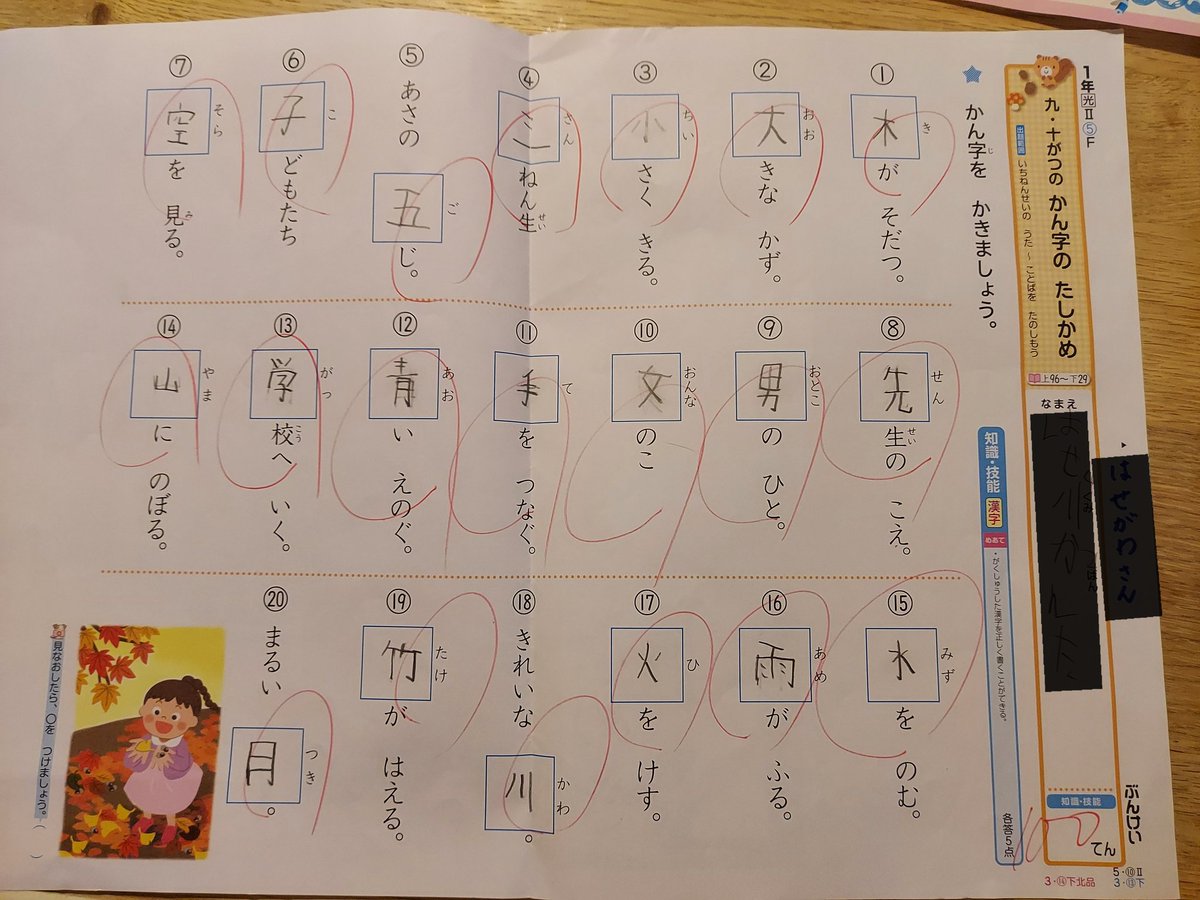 1年光Ⅱ⑤F
九・十がつの かん字の たしかめ
出題範囲 いちねんせいの うた ～ ことばを たのしもう
上96～下29
なまえ
はせがわさん
ぶんけい
知識・技能
100てん
5・⑩Ⅱ
3・⑬下
3・⑭下北品
知識・技能 漢字
めあて ・がくしゅうした漢字を正しく書くことができる。
各答5点
★ かん字を かきましょう。
じ
① 木が そだつ。
き
② 大きな かず。
おお
③ 小さく きる。
ちい
④ 三ねん生
さん
せい
⑤ あさの 五じ。
ご
⑥ 子どもたち
こ
⑦ 空を 見る。
そら
み
⑧ 先生の こえ。
せん
せい
⑨ 男の ひと。
おとこ
⑩ 女のこ
おんな
⑪ 手を つなぐ。
て
⑫ 青い えのぐ。
あお
⑬ 学校へ いく。
がっ
こう
⑭ 山に のぼる。
やま
⑮ 水を のむ。
みず
⑯ 雨が ふる。
あめ
⑰ 火を けす。
ひ
⑱ きれいな 川。
かわ
⑲ 竹が はえる。
たけ
⑳ まるい 月。
つき
見なおしたら、○を つけましょう。( )